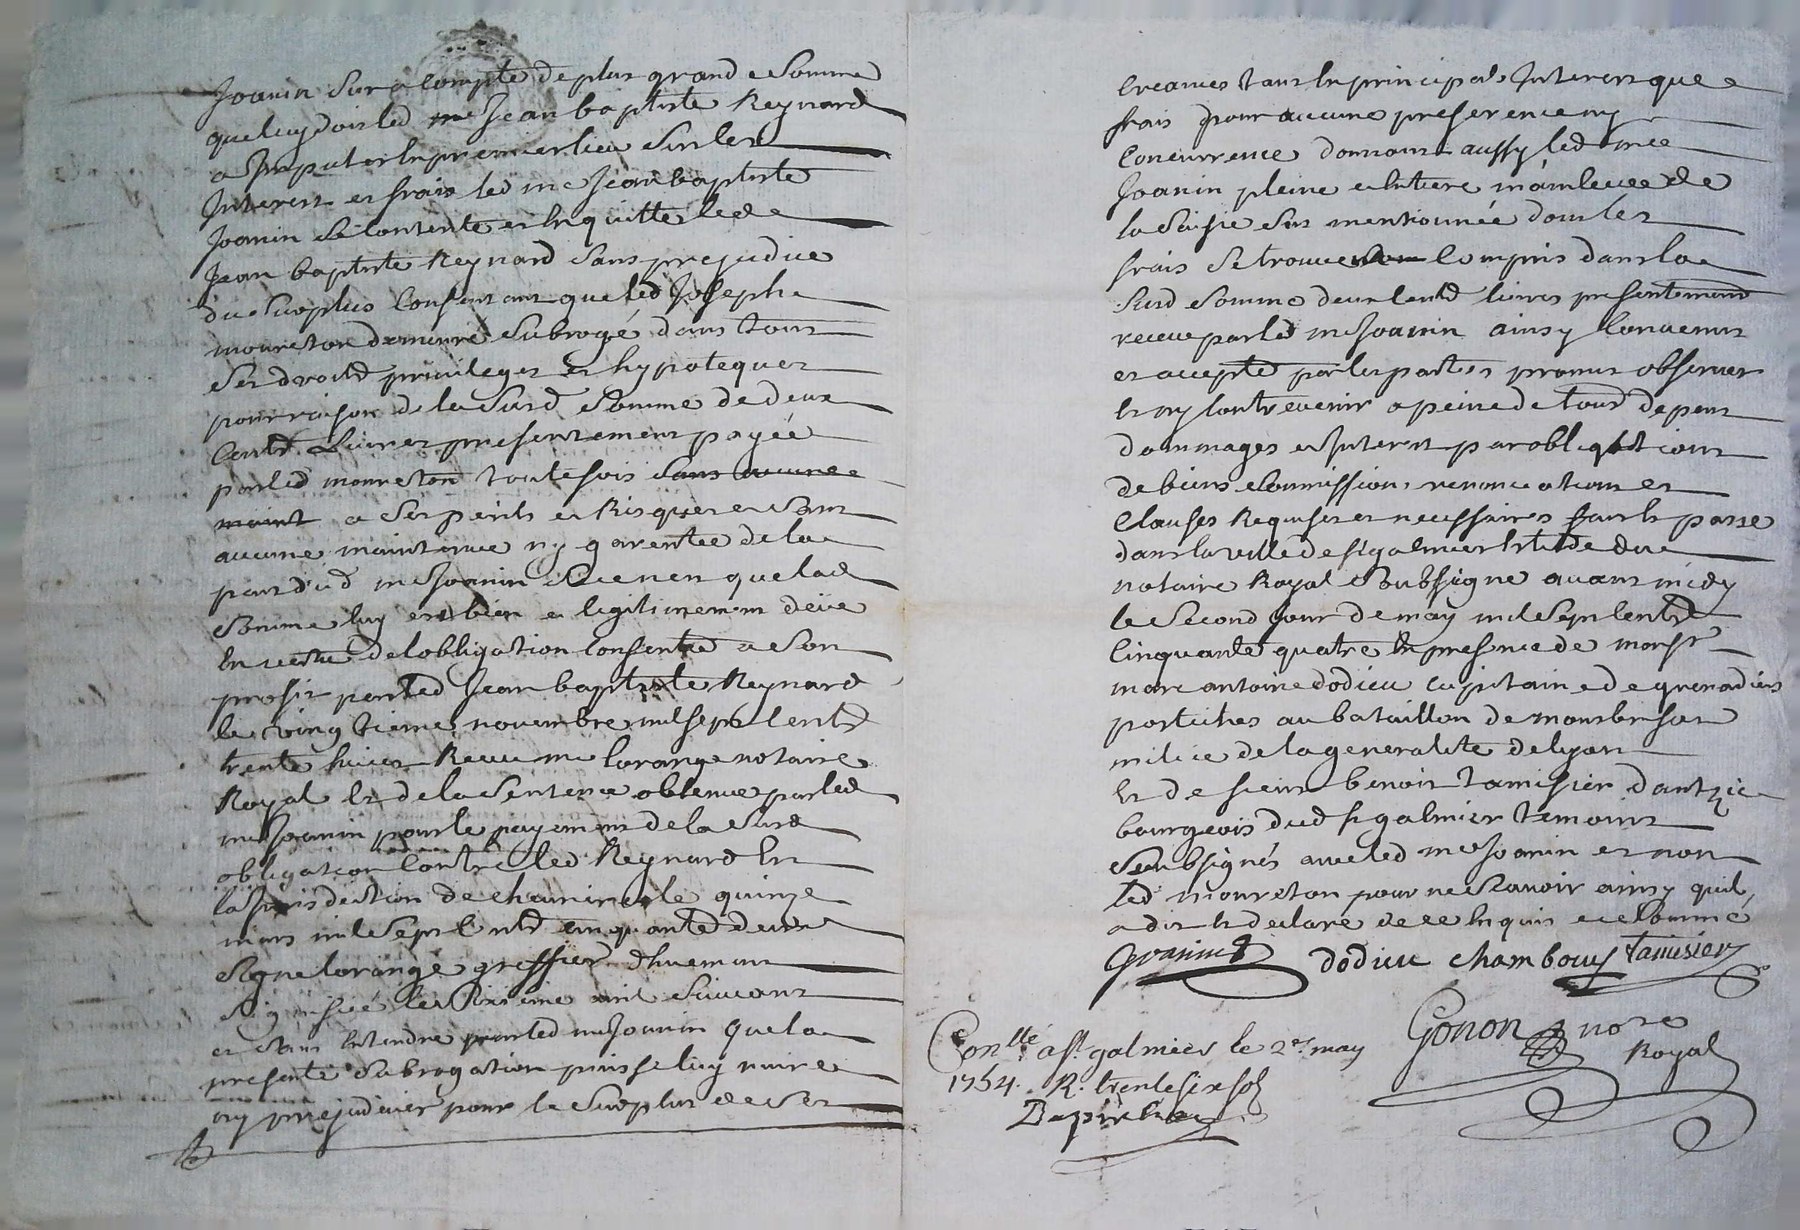 Joanin sur e compte de plus grande somme
que luy doit led me Jean baptiste Reynard
a Imputer En premier lieu sur les
Interets et frais led me Jean baptiste
Joanin se contente et En quitte led
Jean baptiste Reynard sans prejudice
du surplus Consentant que led Joseph
moureton demeure subrogé dans tous
ses droits privileges et hypoteques
pour raison de la susd somme de deux
Cents Livres presentement payée
par led moureton toutefois sans aucune
maint a ses perils et Risques et sans
aucune maintenue ny garentee de la
part dud me Joanin Si ce n'en que lad
somme luy est bien et legitimement deüe
En vertu de lobligation Consentie a son
profit par led Jean baptiste Reynard
le vingtieme novembre mil sept Cents
trente huict Receue me lorange notaire
Royal Et de la Sentence obtenue par led
me Joanin pour le payement de la susd
obligation Contre led Reynard En
la Jurisdiction de le quinze
mars mil sept Cents Cinquante deux
signe lorange greffier dhuement
signifié le avril suivant
et sans Entendre par led me Joanin que la
presente subrogation puisse luy nuire
ny prejudicier pour le surplus de ses
Creances tant En principal Interets que
frais pour aucune preference ny
Concurrence donnant aussy led me
Joanin pleine et Entiere mainlevee de
la Saisie sus mentionnée dont les
frais se trouvent Compris dans la
susd somme deux Cents livres presentement
receue par led me Joanin ainsy Convenus
et accepté par les parties promis observer
Et ny Contrevenir a peine de tous depens
dommages et Interets par obligations
de biens soumission, renonciations et
Clauses Requises et necessaires fait Et passé
dans la ville de st galmier Etude du
notaire Royal Soubsigne avant midy
le second jour de may mil sept Cents
Cinquante quatre En presence de monsr
marc antoine dodieu Capitaine de grenadiers
postiches au bataillon de montbrison
milice de la generalité de lyon
Et de sieur benoit tamisier dantzie
bourgeois dud st galmier temoins
soubsignés avec led me Joanin et non
led moureton pour ne scavoir ainsy quil
a dit Et declaré de ce Enquis et sommé
dodieu chambouy tamisier
Gonon nore
Royal
Conllé a st galmier le 2e may
1754. R. trente six sols